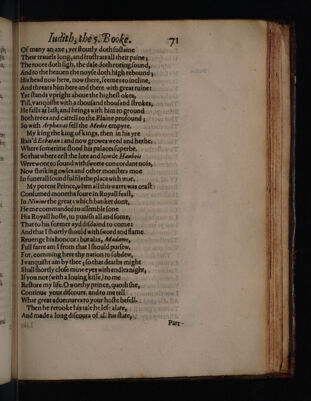 Iudith, the 5. Booke. 71
Of many an axe; yet stoutly doth sustaine
Their travels long, and frustrats all their paine;
The rocce doth sigh, the dale doth roring sound,
And to the heaven the noyse doth high rebound;
His head now here, now there, seemes to incline,
And threats him here and there with great ruine:
Yet stands vpright above the highest okes,
Till, vanquisht with a thousand thousand strokes,
He falls at last; and brings with him to ground
Both trees and cattell to the Plaine profound;
So with Arphaxat fell the Medes empyre.
My king the king of kings, then in his yre
Rais'd Ecbatan: and now growes weed and herbe.
Where sometime stood his palaces superbe.
So that where erst the lute and lowde Hauboix
Were wont to sound with sweete concordant nois,
Now shriking owles and other monsters moe
In funerall sound fulfils the place with woe.
My potent Prince, when all this warrs was ceast
Consumed months foure in Royall feast,
In Niniuè the great; which banket dont,
He me commanded to assemble sone
His Royall hoste, to punish all and some,
That to his former ayd disdained to come:
And that I shortly should with sword and flame
Revenge his honour: but alas, Madame,
Full farre am I from that I should pursew,
For, comming here thy nation to subdew,
I vanquisht am by thee; so that deaths might
Shall shortly close mine eyes with endles night,
If you not (with a louing kisse) to me
Restore my life. O worthy prince, quoth she,
Continue your discours, and to me tell
What great aduentures to your hoste befell.
Then he retooke his tale he left alate,
And made a long discours of all his state,
Part